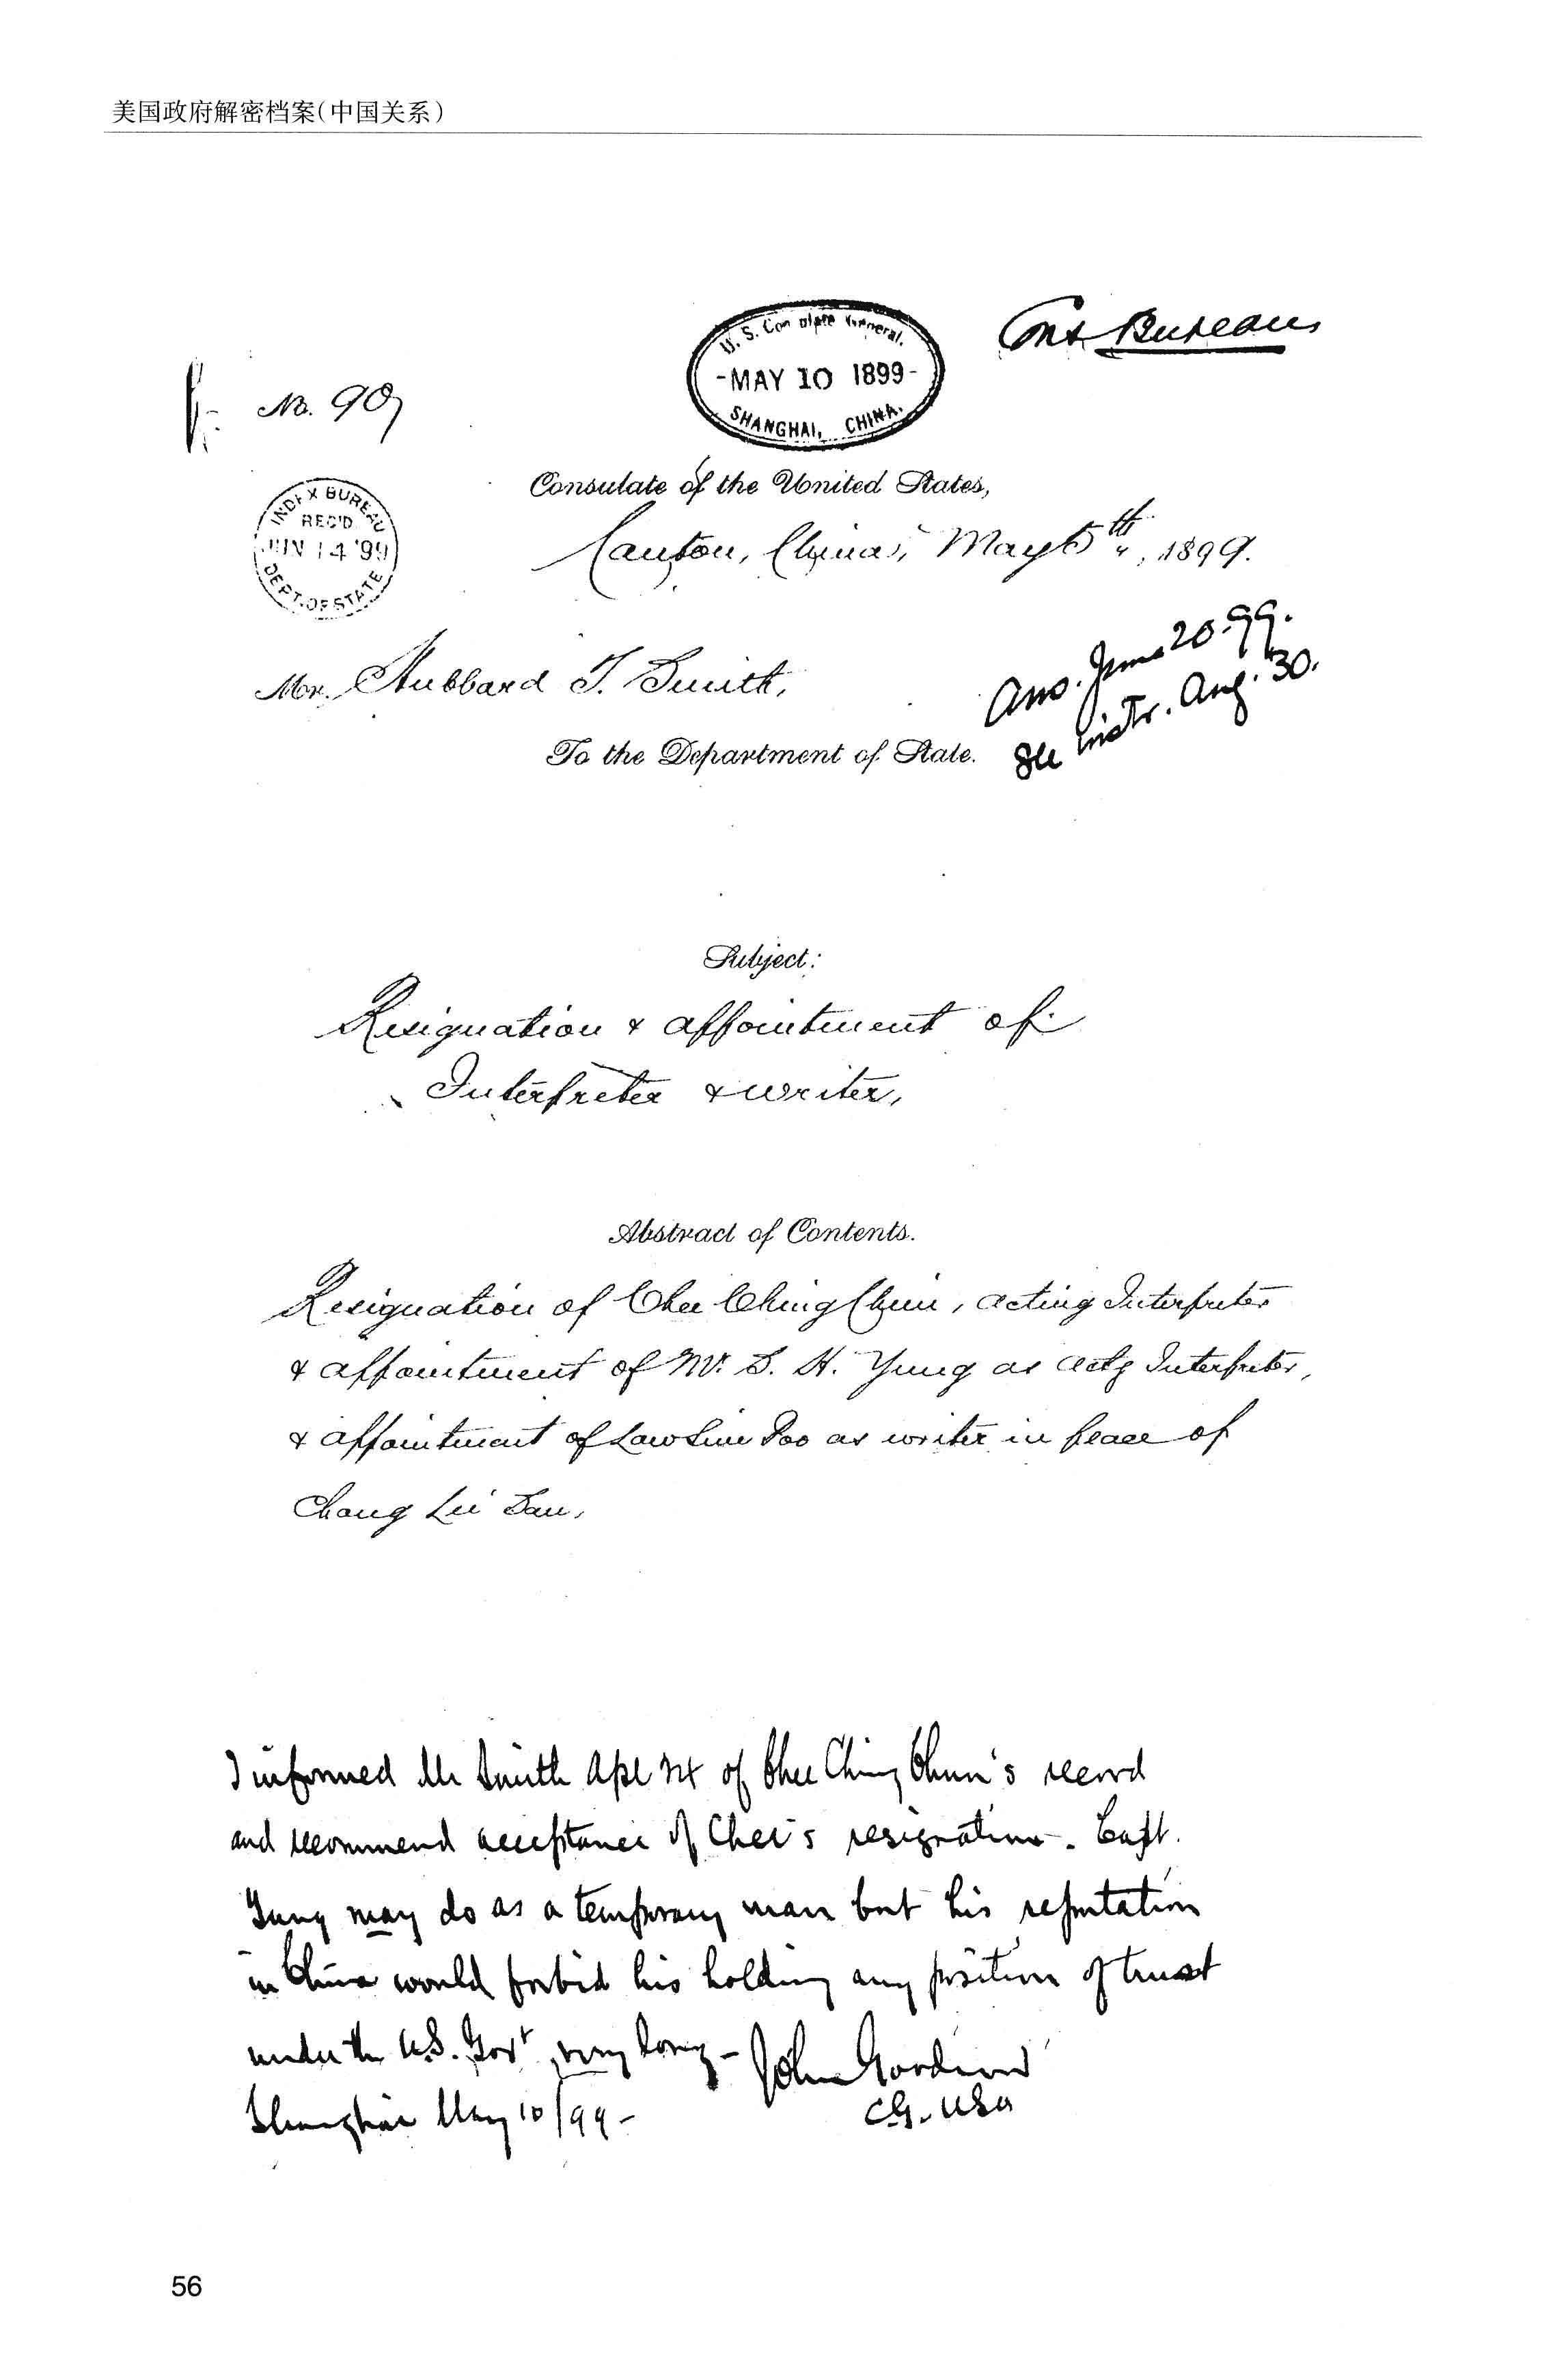 美国政府解密档案(中国关系)
U.S. Consulate General.
-MAY 10 1899-
SHANGHAI, CHINA.
Bureau
No. 90
Consulate of the United States,
INDEX BUREAU
REC'D
JUN 14 '99
DEPT. OF STATE
Canton, China, May 5th, 1899.
Ans. June 20-99.
See instr. Aug. 30.
Mr. Hubbard T. Smith,
To the Department of State.
Subject:
Resignation & appointment of
Interpreter & writer,
Abstract of Contents.
Resignation of Chee Ching Chun, acting Interpreter
& appointment of Mr. S. H. Yung as actg Interpreter,
& appointment of Law Sun Poo as writer in place of
Chang Lii San,
I informed Mr Smith Apl of Chee Ching Chun's record
and recommend acceptance of Chee's resignation. Capt.
Yung may do as a temporary man but his reputation
in China would forbid his holding any position of trust
under the U.S. Govt very long -
John Goodnow
Shanghai May 10/99-
CG. USA
56